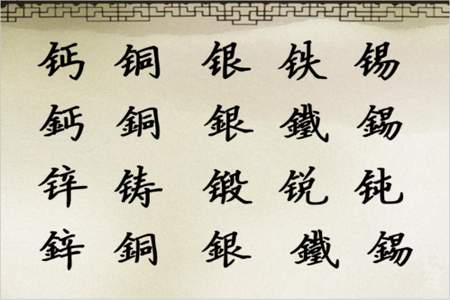 钙铜银铁锡
鈣銅銀鐵錫
锌铸锻锐钝
鋅銅銀鐵錫